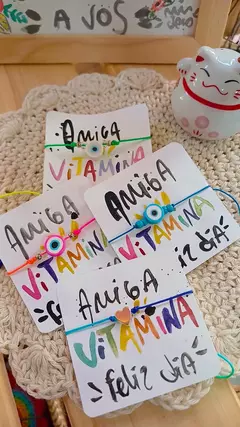 A JOS
AMIGA
VITAMINA
AMIGA
VITAMINA
iz dia
AMIGA
VITAMINA
AMIGA
VITAMINA
feliz dia